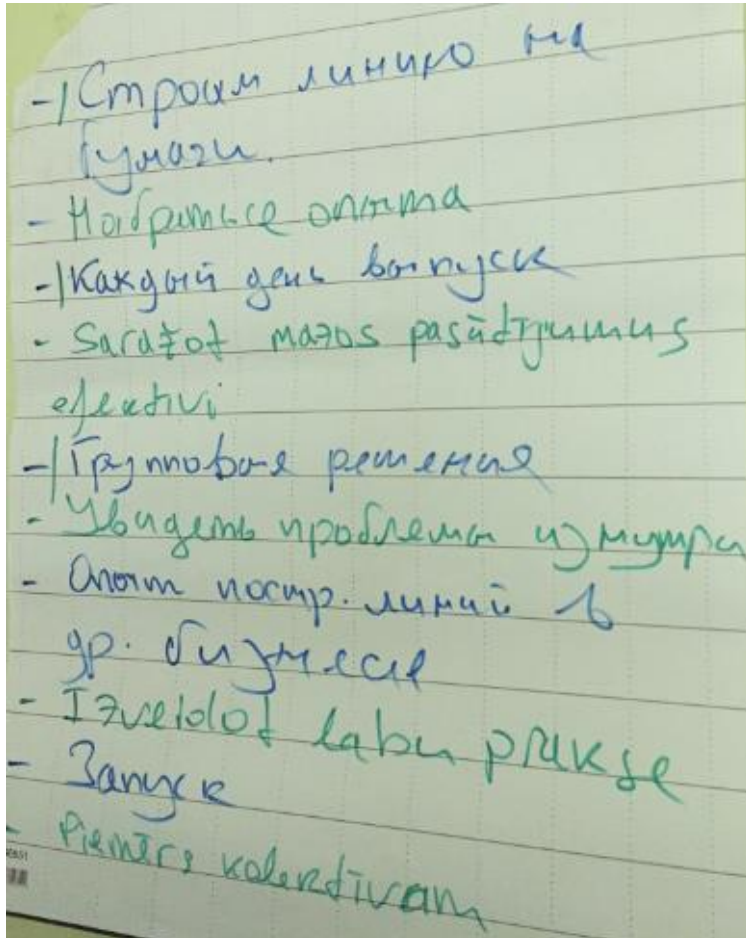 -| Строим линию на
бумаги.
- Набраться опыта
-| Каждый день выпуск
- Saražot mazos pasūtījumus
efektīvi
-| Групповые решения
- Увидеть проблемы изнутри
- Опыт постр. линий в
др. бизнесе
- Izveidot labu praksi
- Запуск
- Piemērs kolektīvam